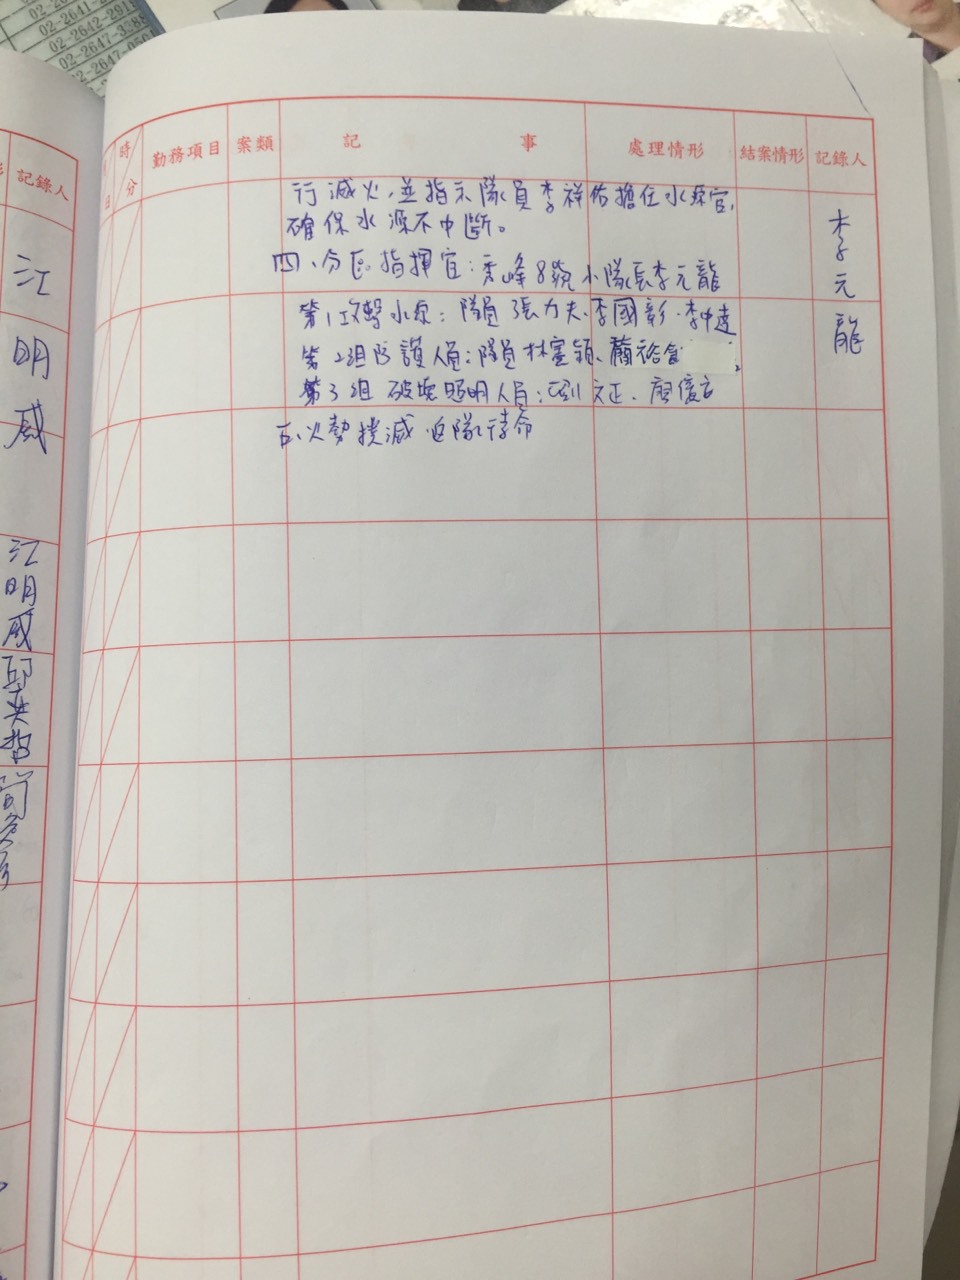 02-2641-291
02-2642-291
02-2647-338
02-2647-0501
記錄人
江明威
江明威
邱英哲
時分
日
勤務項目 案類 記事 處理情形 結案情形 記錄人
行滅火，並指示隊員李祥佑擔任水源官，
確保水源不中斷。
四、分區指揮官：秀峰8號小隊長李元龍
第1攻擊水線：隊員張力夫、李國彰、李中達
第2組防護人員：隊員林
第3組破壞照明人員：劉文正、廖
五、火勢撲滅返隊待命
李元龍